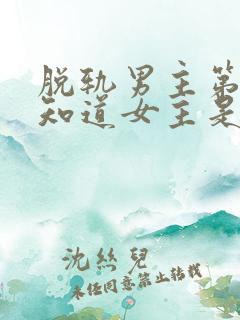 脱轨男主第
知道女主是
沈丝儿
未经同意禁止转载